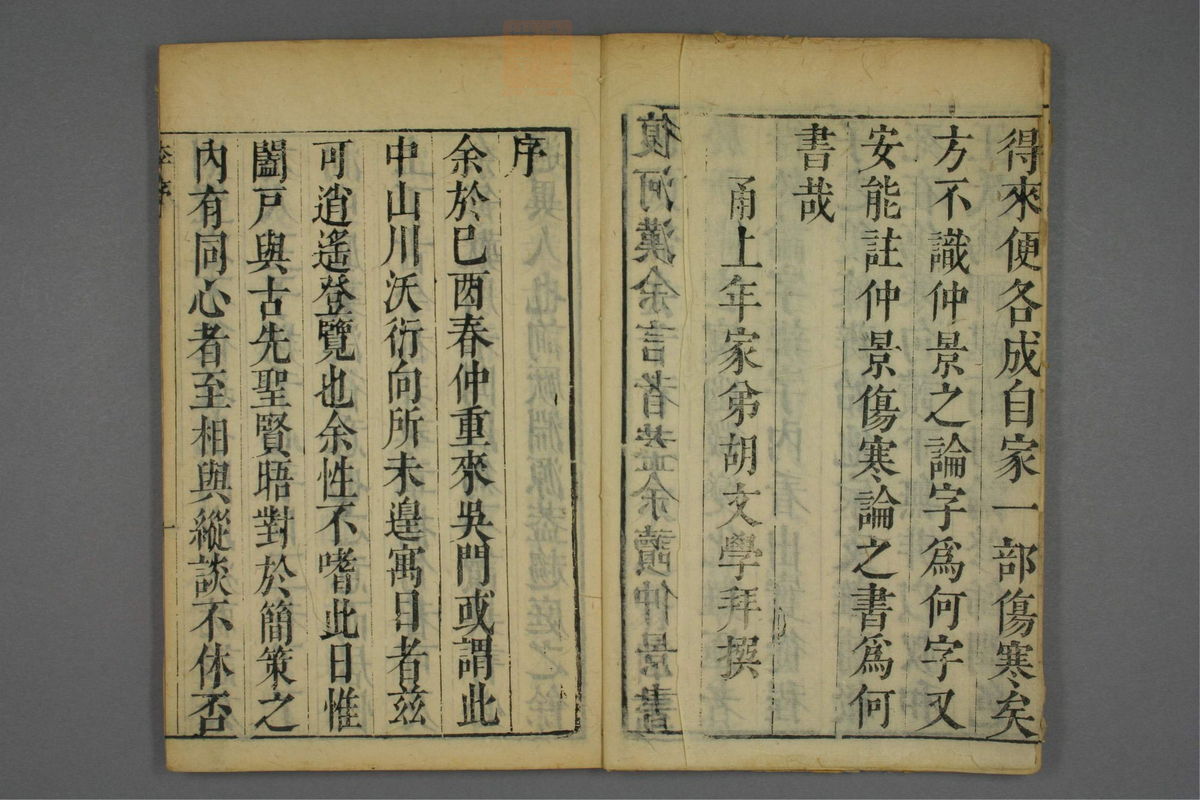 得來便各成自家一部傷寒矣
方不識仲景之論字爲何字又
安能註仲景傷寒論之書爲何
書哉
甬上年家弟胡文學拜撰
序
余於巳酉春仲重來吳門或謂此
中山川沃衍向所未遑寓目者兹
可逍遙登覽也余性不嗜此日惟
闔戸與古先聖賢晤對於簡策之
內有同心者至相與縱談不休否